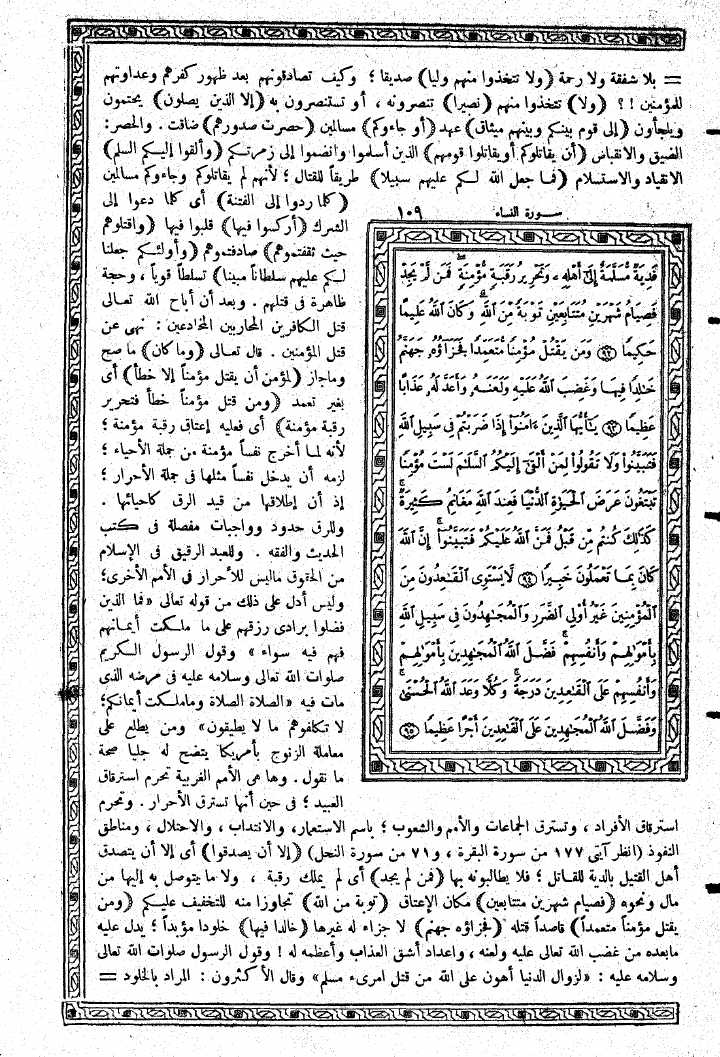 = بلا شفقة ولا رحمة (ولا تتخذوا منهم وليا) صديقا ؛ وكيف تصادقونهم بعد ظهور كفرهم وعداوتهم
للمؤمنين !؟ (ولا) تتخذوا منهم (نصيرا) تنصرونه ، أو تستنصرون به (إلا الذين يصلون) يحتمون
ويلجأون (إلى قوم بينكم وبينهم ميثاق) عهد (أو جاءوكم) مسالمين (حصرت صدورهم) ضاقت . والحصر:
الضيق والانقباض (أن يقاتلوكم أو يقاتلوا قومهم) الذين أسلموا وانضموا إلى زمرتكم (وألقوا إليكم السلم)
الانقياد والاستسلام (فما جعل الله لكم عليهم سبيلا) طريقاً للقتال ؛ لأنهم لم يقاتلوكم وجاءوكم مسالمين
(كلما ردوا إلى الفتنة) أى كلما دعوا إلى
الشرك (أركسوا فيها) قلبوا فيها (واقتلوهم
حيث ثقفتموهم) صادفتموهم (وأولئكم جعلنا
لكم عليهم سلطاناً مبينا) تسلطاً قوياً ، وحجة
ظاهرة فى قتلهم . وبعد أن أباح الله تعالى
قتل الكافرين المحاربين المخادعين : نهى عن
قتل المؤمنين . قال تعالى (وما كان) ما صح
وماجاز (لمؤمن أن يقتل مؤمناً إلا خطأ) أى
بغير تعمد (ومن قتل مؤمناً خطأ فتحرير
رقبة مؤمنة) أى فعليه إعتاق رقبة مؤمنة ؛
لأنه لما أخرج نفساً مؤمنة من جملة الأحياء ؛
لزمه أن يدخل نفساً مثلها فى جملة الأحرار ؛
إذ أن إطلاقها من قيد الرق كاحيائها .
وللرق حدود وواجبات مفصلة فى كتب
الحديث والفقه . وللعبد الرقيق فى الإسلام
من الحقوق ماليس للأحرار فى الأمم الأخرى؛
وليس أدل على ذلك من قوله تعالى «فما الذين
فضلوا برادى رزقهم على ما ملكت أيمانهم
فهم فيه سواء» وقول الرسول الكريم
صلوات الله تعالى وسلامه عليه فى مرضه الذى
مات فيه «الصلاة الصلاة وماملكت أيمانكم؛
لا تكلفوهم ما لا يطيقون» ومن يطلع على
معاملة الزنوج بأمريكا يتضح له جليا صحة
ما نقول . وها هى الأمم الغربية تحرم استرقاق
العبيد ؛ فى حين أنها تسترق الأحرار . وتحرم
سورة النساء ١٠٩
فَدِيَةٌ مُّسَلَّمَةٌ إِلَىٰٓ أَهْلِهِۦ وَتَحْرِيرُ رَقَبَةٍ مُّؤْمِنَةٍ ۖ فَمَن لَّمْ يَجِدْ
فَصِيَامُ شَهْرَيْنِ مُتَتَابِعَيْنِ تَوْبَةً مِّنَ ٱللَّهِ ۗ وَكَانَ ٱللَّهُ عَلِيمًا
حَكِيمًا ٩٢ وَمَن يَقْتُلْ مُؤْمِنًا مُّتَعَمِّدًا فَجَزَآؤُهُۥ جَهَنَّمُ
خَٰلِدًا فِيهَا وَغَضِبَ ٱللَّهُ عَلَيْهِ وَلَعَنَهُۥ وَأَعَدَّ لَهُۥ عَذَابًا
عَظِيمًا ٩٣ يَٰٓأَيُّهَا ٱلَّذِينَ ءَامَنُوٓا۟ إِذَا ضَرَبْتُمْ فِى سَبِيلِ ٱللَّهِ
فَتَبَيَّنُوا۟ وَلَا تَقُولُوا۟ لِمَنْ أَلْقَىٰٓ إِلَيْكُمُ ٱلسَّلَٰمَ لَسْتَ مُؤْمِنًا
تَبْتَغُونَ عَرَضَ ٱلْحَيَوٰةِ ٱلدُّنْيَا فَعِندَ ٱللَّهِ مَغَانِمُ كَثِيرَةٌ ۚ
كَذَٰلِكَ كُنتُم مِّن قَبْلُ فَمَنَّ ٱللَّهُ عَلَيْكُمْ فَتَبَيَّنُوٓا۟ ۚ إِنَّ ٱللَّهَ
كَانَ بِمَا تَعْمَلُونَ خَبِيرًا ٩٤ لَّا يَسْتَوِى ٱلْقَٰعِدُونَ مِنَ
ٱلْمُؤْمِنِينَ غَيْرُ أُو۟لِى ٱلضَّرَرِ وَٱلْمُجَٰهِدُونَ فِى سَبِيلِ ٱللَّهِ
بِأَمْوَٰلِهِمْ وَأَنفُسِهِمْ ۚ فَضَّلَ ٱللَّهُ ٱلْمُجَٰهِدِينَ بِأَمْوَٰلِهِمْ
وَأَنفُسِهِمْ عَلَى ٱلْقَٰعِدِينَ دَرَجَةً ۚ وَكُلًّا وَعَدَ ٱللَّهُ ٱلْحُسْنَىٰ ۚ
وَفَضَّلَ ٱللَّهُ ٱلْمُجَٰهِدِينَ عَلَى ٱلْقَٰعِدِينَ أَجْرًا عَظِيمًا ٩٥
استرقاق الأفراد ، وتسترق الجماعات والأمم والشعوب ؛ باسم الاستعمار، والانتداب ، والاحتلال ، ومناطق
النفوذ (انظر آيتى ١٧٧ من سورة البقرة ، و٧١ من سورة النحل) (إلا أن يصدقوا) أى إلا أن يتصدق
أهل القتيل بالدية للقاتل ؛ فلا يطالبونه بها (فمن لم يجد) أى لم يملك رقبة ، ولا ما يتوصل به إليها من
مال ونحوه (فصيام شهرين متتابعين) مكان الإعتاق (توبة من الله) تجاوزا منه للتخفيف عليكم (ومن
يقتل مؤمناً متعمداً) قاصداً قتله (فجزاؤه جهنم) لا جزاء له غيرها (خالدا فيها) خلودا مؤبداً ؛ يدل عليه
مابعده من غضب الله تعالى عليه ولعنه ، واعداد أشق العذاب وأعظمه له ! وقول الرسول صلوات الله تعالى
وسلامه عليه : «لزوال الدنيا أهون على الله من قتل امرىء مسلم» وقال الأكثرون : المراد بالخلود =